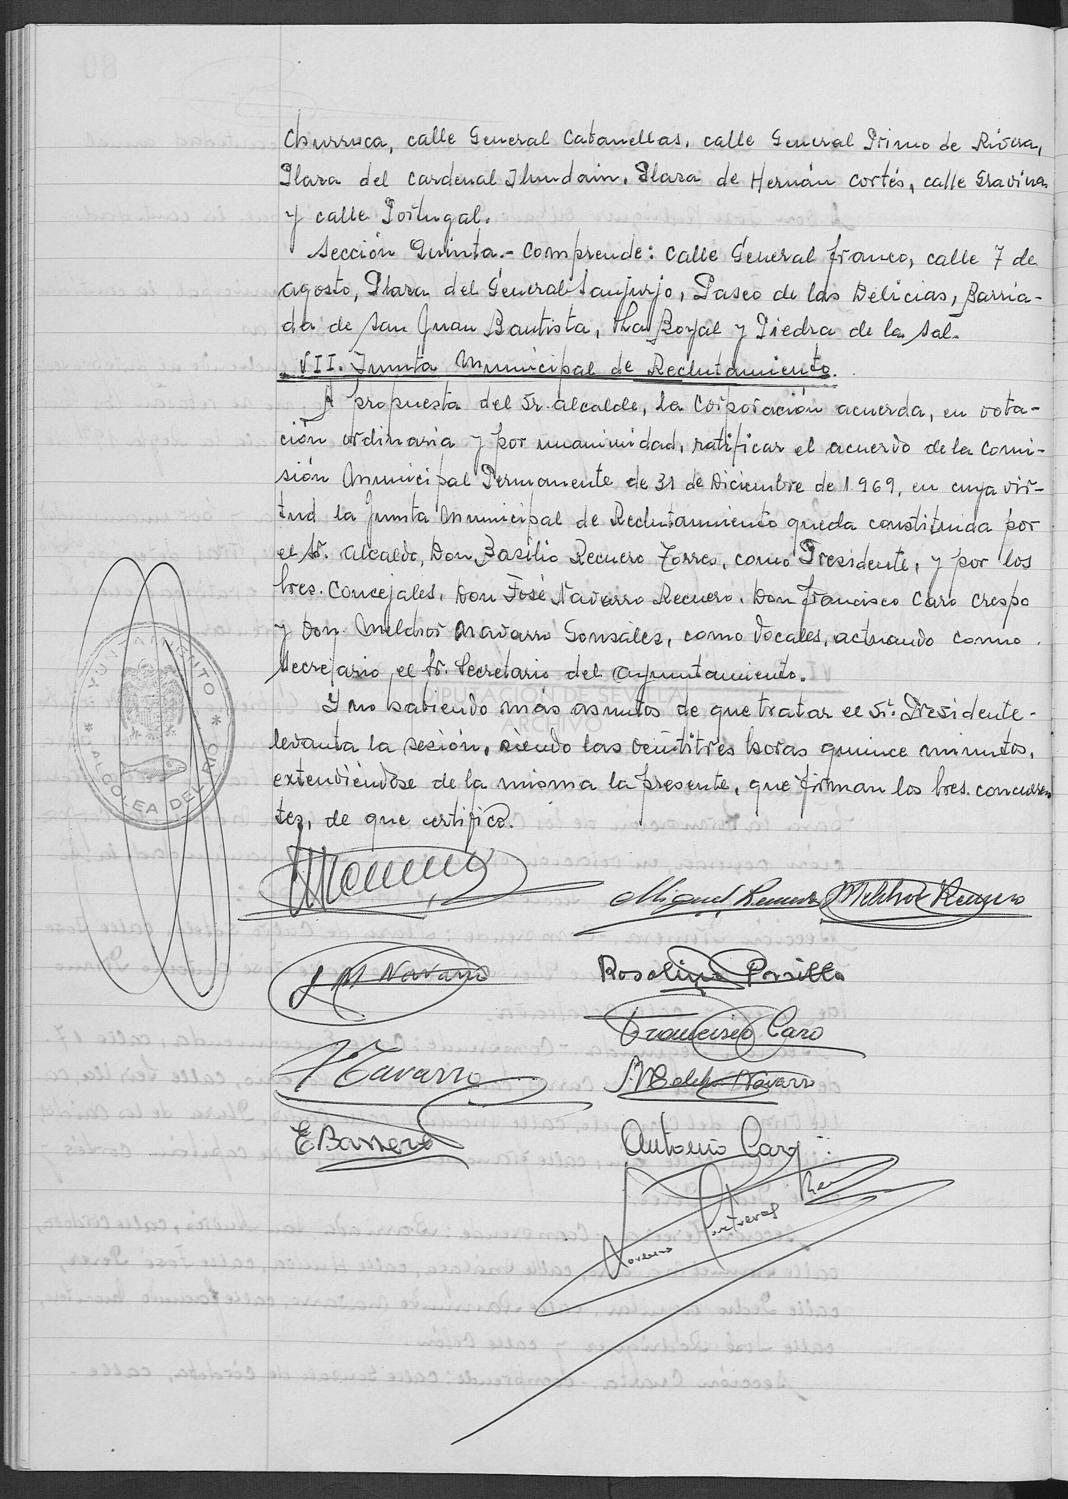 Churruca, calle General Cabanellas, calle General Primo de Rivera,
Plaza del Cardenal Ilundain, Plaza de Hernán Cortés, calle Gravina
y calle Portugal.
Sección Quinta.- Comprende: calle General Franco, calle 7 de
Agosto, Plaza del General Sanjurjo, Paseo de las Delicias, Barria-
da de San Juan Bautista, La Royal y Piedra de la Sal.
VII. Junta Municipal de Reclutamiento.
A propuesta del Sr. Alcalde, la Corporación acuerda, en vota-
ción ordinaria y por unanimidad, ratificar el acuerdo de la Comi-
sión Municipal Permanente de 31 de Diciembre de 1969, en cuya vir-
tud la Junta Municipal de Reclutamiento queda constituida por
el Sr. Alcalde, Don Basilio Recuero Torres, como Presidente, y por los
Sres. Concejales, Don José Navarro Recuero, Don Francisco Caro Crespo
y Don Melchor Navarro Gonsález, como Vocales, actuando como
Secretario el Sr. Secretario del Ayuntamiento.
Y no habiendo más asuntos de que tratar el Sr. Presidente
levanta la sesión, siendo las veintitres horas quince minutos,
extendiéndose de la misma la presente, que firman los Sres. concurren
tes, de que certifico.
AYUNTAMIENTO
* ALCOLEA DEL RIO *
DIPUTACIÓN DE SEVILLA
ARCHIVO
Miguel Recuero Melchor Recuero
J M Navarro Rosalino Parrilla
Francisco Caro
J Navarro Melchor Navarro
E Barrera Antonio Caro
Lorenzo Contreras